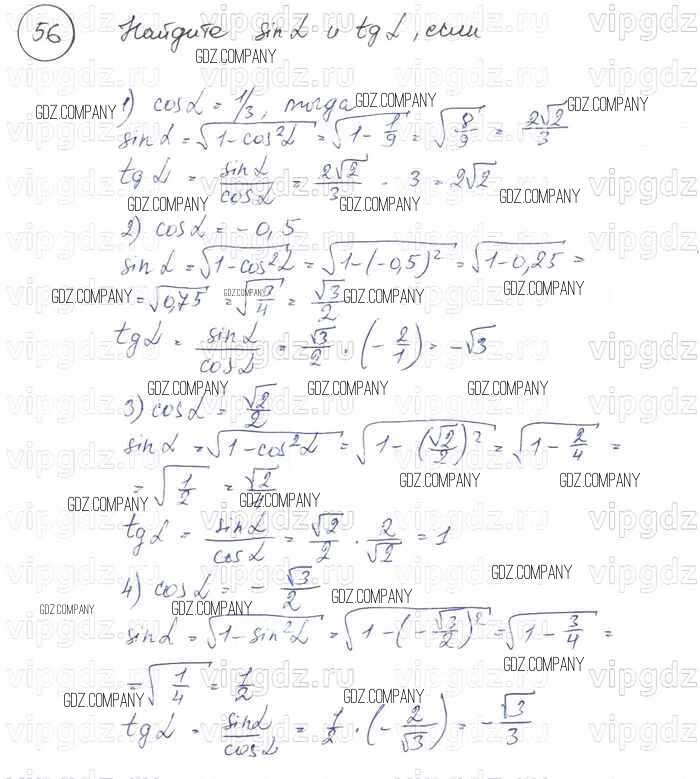 56 Найдите sin α и tg α, если
1) cos α = 1/3, тогда
sin α = √(1 - cos²α) = √(1 - 1/9) = √(8/9) = 2√2/3
tg α = sin α/cos α = 2√2/3 · 3 = 2√2
2) cos α = -0,5
sin α = √(1 - cos²α) = √(1 - (-0,5)²) = √(1 - 0,25) =
= √0,75 = √(3/4) = √3/2
tg α = sin α/cos α = √3/2 · (-2/1) = -√3
3) cos α = √2/2
sin α = √(1 - cos²α) = √(1 - (√2/2)²) = √(1 - 2/4) =
= √(1/2) = √2/2
tg α = sin α/cos α = √2/2 · 2/√2 = 1
4) cos α = -√3/2
sin α = √(1 - sin²α) = √(1 - (-√3/2)²) = √(1 - 3/4) =
= √(1/4) = 1/2
tg α = sin α/cos α = 1/2 · (-2/√3) = -√3/3
GDZ.COMPANY
vipgdz.ru